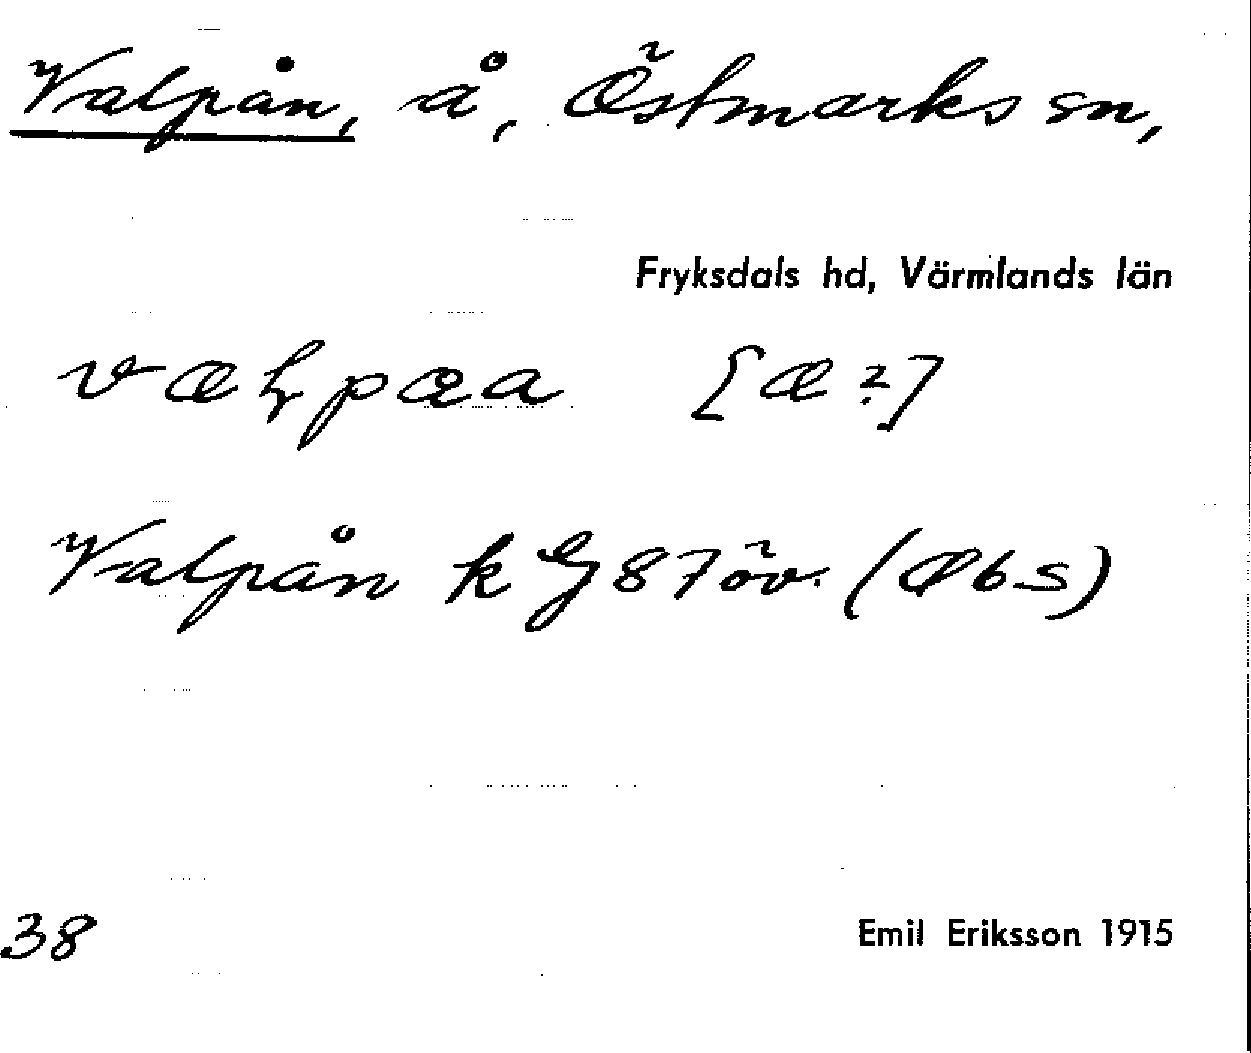 Valpån, å, Östmarks sn,
Fryksdals hd, Värmlands län
[æ ?]
Valpån k G 87 öv. (Æbs)
38
Emil Eriksson 1915